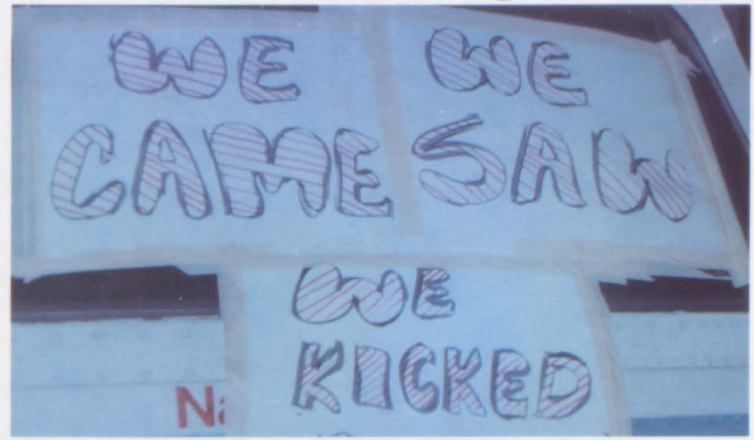 WE
CAME
WE
SAW
WE
KICKED